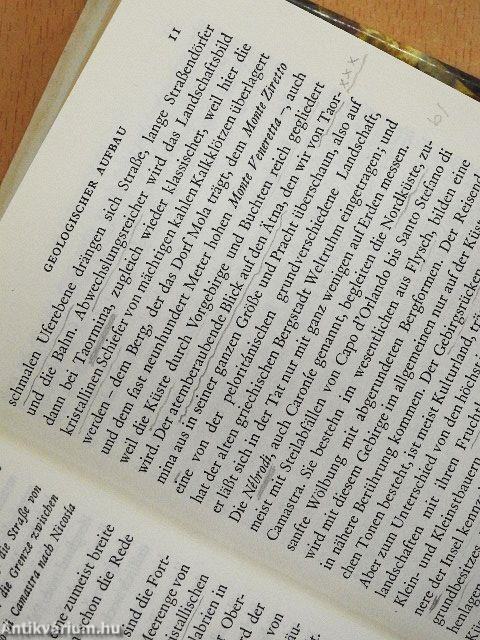 GEOLOGISCHER AUFBAU
11
schmalen Uferebene drängen sich Straße, lange Straßendörfer
und die Bahn. Abwechslungsreicher wird das Landschaftsbild
dann bei Taormina, zugleich wieder klassischer, weil hier die
kristallinen Schiefer von mächtigen kahlen Kalkklötzen überlagert
werden – dem Berg, der das Dorf Mola trägt, dem Monte Ziretto
und dem fast neunhundert Meter hohen Monte Veneretta –, auch
weil die Küste durch Vorgebirge und Buchten reich gegliedert
wird. Der atemberaubende Blick auf den Ätna, den wir von Taor-
mina aus in seiner ganzen Größe und Pracht überschaun, also auf
eine von der peloritanischen grundverschiedene Landschaft,
hat der alten griechischen Bergstadt Weltruhm eingetragen; und
er läßt sich in der Tat nur mit ganz wenigen auf Erden messen.
Die Nébrodi, auch Caroníe genannt, begleiten die Nordküste, zu-
meist mit Steilabfällen von Capo d'Orlando bis Santo Stefano di
Camastra. Sie bestehn im wesentlichen aus Flysch, bilden eine
sanfte Wölbung mit abgerundeten Bergformen. Der Reisend
wird mit diesem Gebirge im allgemeinen nur auf der Küs
in nähere Berührung kommen. Der Gebirgsrücken
chen Tonen besteht, ist meist Kulturland, trä
Aber zum Unterschied von den höchst
landschaften mit ihren Frucht
Klein- und Kleinstbauern
nere der Insel kennz
grundbesitzes
xxx
b/
die Straße von
die Grenze zwischen
Camastra nach Nicosía
ge zumeist breite
schon die Rede
sind die Fort-
Meerenge von
kristallischen
labrien in
r Ober-
rd der
von
Antikvárium.hu